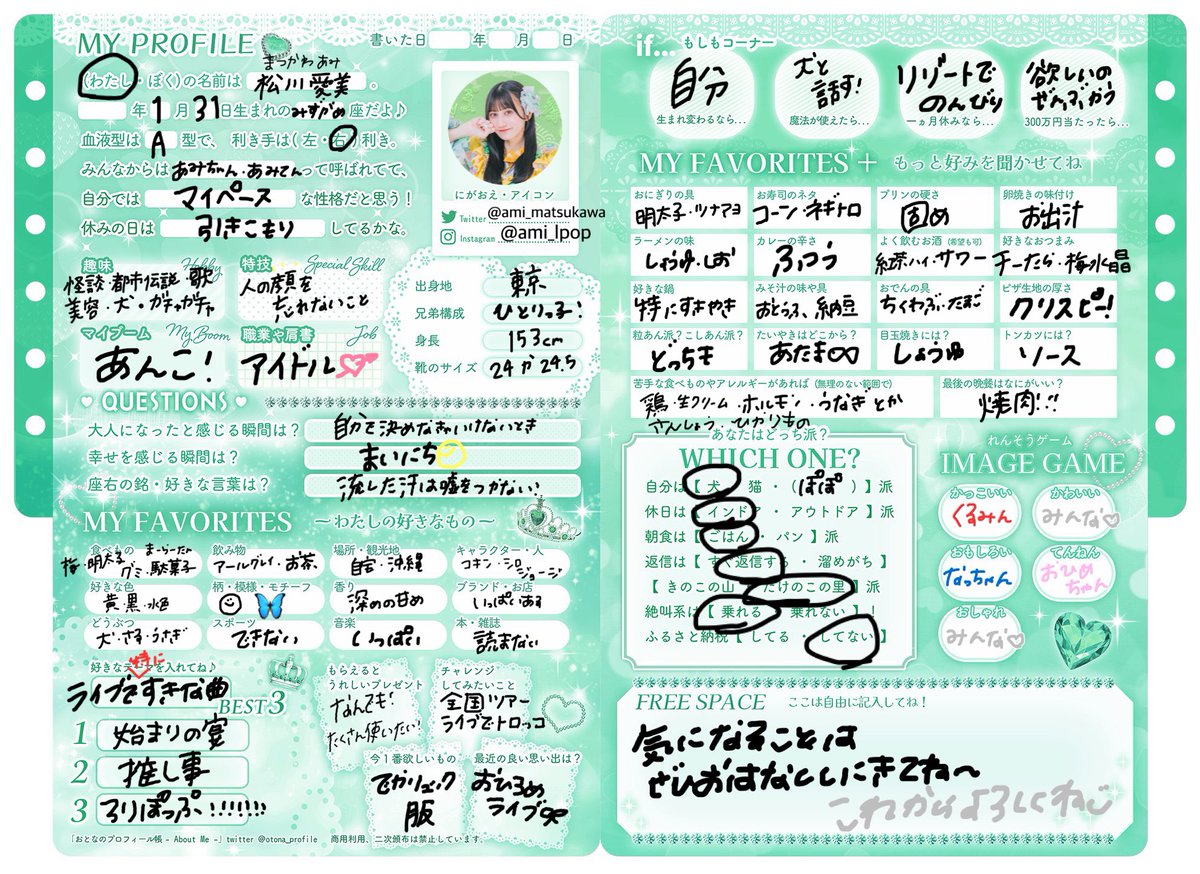 MY PROFILE
書いた日 年 月 日
まつかわあみ
(わたし・ぼく)の名前は 松川愛美 。
年 1 月 31 日生まれの みずがめ 座だよ♪
血液型は A 型で、 利き手は(左・右)利き。
みんなからは あみちゃん・あみてん って呼ばれてて、
自分では マイペース な性格だと思う!
休みの日は 引きこもり してるかな。
にがおえ・アイコン
Twitter @ami_matsukawa
Instagram @ami_lpop
趣味 Hobby
怪談・都市伝説・歌
美容・犬・ガチャガチャ
特技 Special Skill
人の顔を
忘れないこと
マイブーム My Boom
あんこ!
職業や肩書 Job
アイドル
出身地 東京
兄弟構成 ひとりっ子!
身長 153cm
靴のサイズ 24か24.5
QUESTIONS
大人になったと感じる瞬間は? 自分で決めなきゃいけないとき
幸せを感じる瞬間は? まいにち
座右の銘・好きな言葉は? 流した汗は嘘をつかない!
MY FAVORITES 〜わたしの好きなもの〜
食べもの 梅・明太子・まーらーたん
グミ・駄菓子
飲み物 アールグレイ・お茶
場所・観光地 自宅・沖縄
キャラクター・人 コナン・シロ
ジョージ
好きな色 黄・黒・水色
柄・模様・モチーフ
香り 深めの甘め
ブランド・お店 いっぱいある
どうぶつ 犬・さる・うさぎ
スポーツ できない
音楽 いっぱい
本・雑誌 読まない
好きなテーマを入れてね♪
特に
ライブですきな曲
BEST3
1 始まりの宴
2 推し事
3 ろりぽっぷ!!!!!!!
もらえると
うれしいプレゼント
なんでも!
たくさん使いたい!
チャレンジ
してみたいこと
全国ツアー
ライブでトロッコ
今1番欲しいもの
でかリュック
服
最近の良い思い出は?
おひろめ
ライブ
「おとなのプロフィール帳 - About Me -」twitter @otona_profile 商用利用、二次頒布は禁止しています。
if... もしもコーナー
自分
生まれ変わるなら…
犬と
話す!
魔法が使えたら…
リゾートで
のんびり
一ヵ月休みなら…
欲しいの
ぜんぶかう
300万円当たったら…
MY FAVORITES + もっと好みを聞かせてね
おにぎりの具 明太子・ツナマヨ
お寿司のネタ コーン・ネギトロ
プリンの硬さ 固め
卵焼きの味付け お出汁
ラーメンの味 しょうゆ・しお
カレーの辛さ ふつう
よく飲むお酒(希望も可) 紅茶ハイ・サワー
好きなおつまみ チーたら・梅水晶
好きな鍋 特にすきやき
みそ汁の味や具 おとうふ、納豆
おでんの具 ちくわぶ・たまご
ピザ生地の厚さ クリスピー!
粒あん派?こしあん派? どっちも
たいやきはどこから? あたま
目玉焼きには? しょうゆ
トンカツには? ソース
苦手な食べものやアレルギーがあれば(無理のない範囲で)
鶏・生クリーム・ホルモン・うなぎとか
さんしょう・ひかりもの
最後の晩餐はなにがいい?
焼肉!!!
あなたはどっち派?
WHICH ONE?
自分は【 犬 ・ 猫 ・(ぽぽ)】派
休日は【 インドア ・ アウトドア 】派
朝食は【 ごはん ・ パン 】派
返信は【 すぐ返信する ・ 溜めがち 】
【 きのこの山 ・ たけのこの里 】派
絶叫系は【 乗れる ・ 乗れない 】!
ふるさと納税【 してる ・ してない 】
れんそうゲーム
IMAGE GAME
かっこいい くるみん
かわいい みんな♡
おもしろい なっちゃん
てんねん おひめ
ちゃん
おしゃれ みんな♡
FREE SPACE ここは自由に記入してね!
気になることは
ぜひおはなししにきてね〜
これからよろしくね